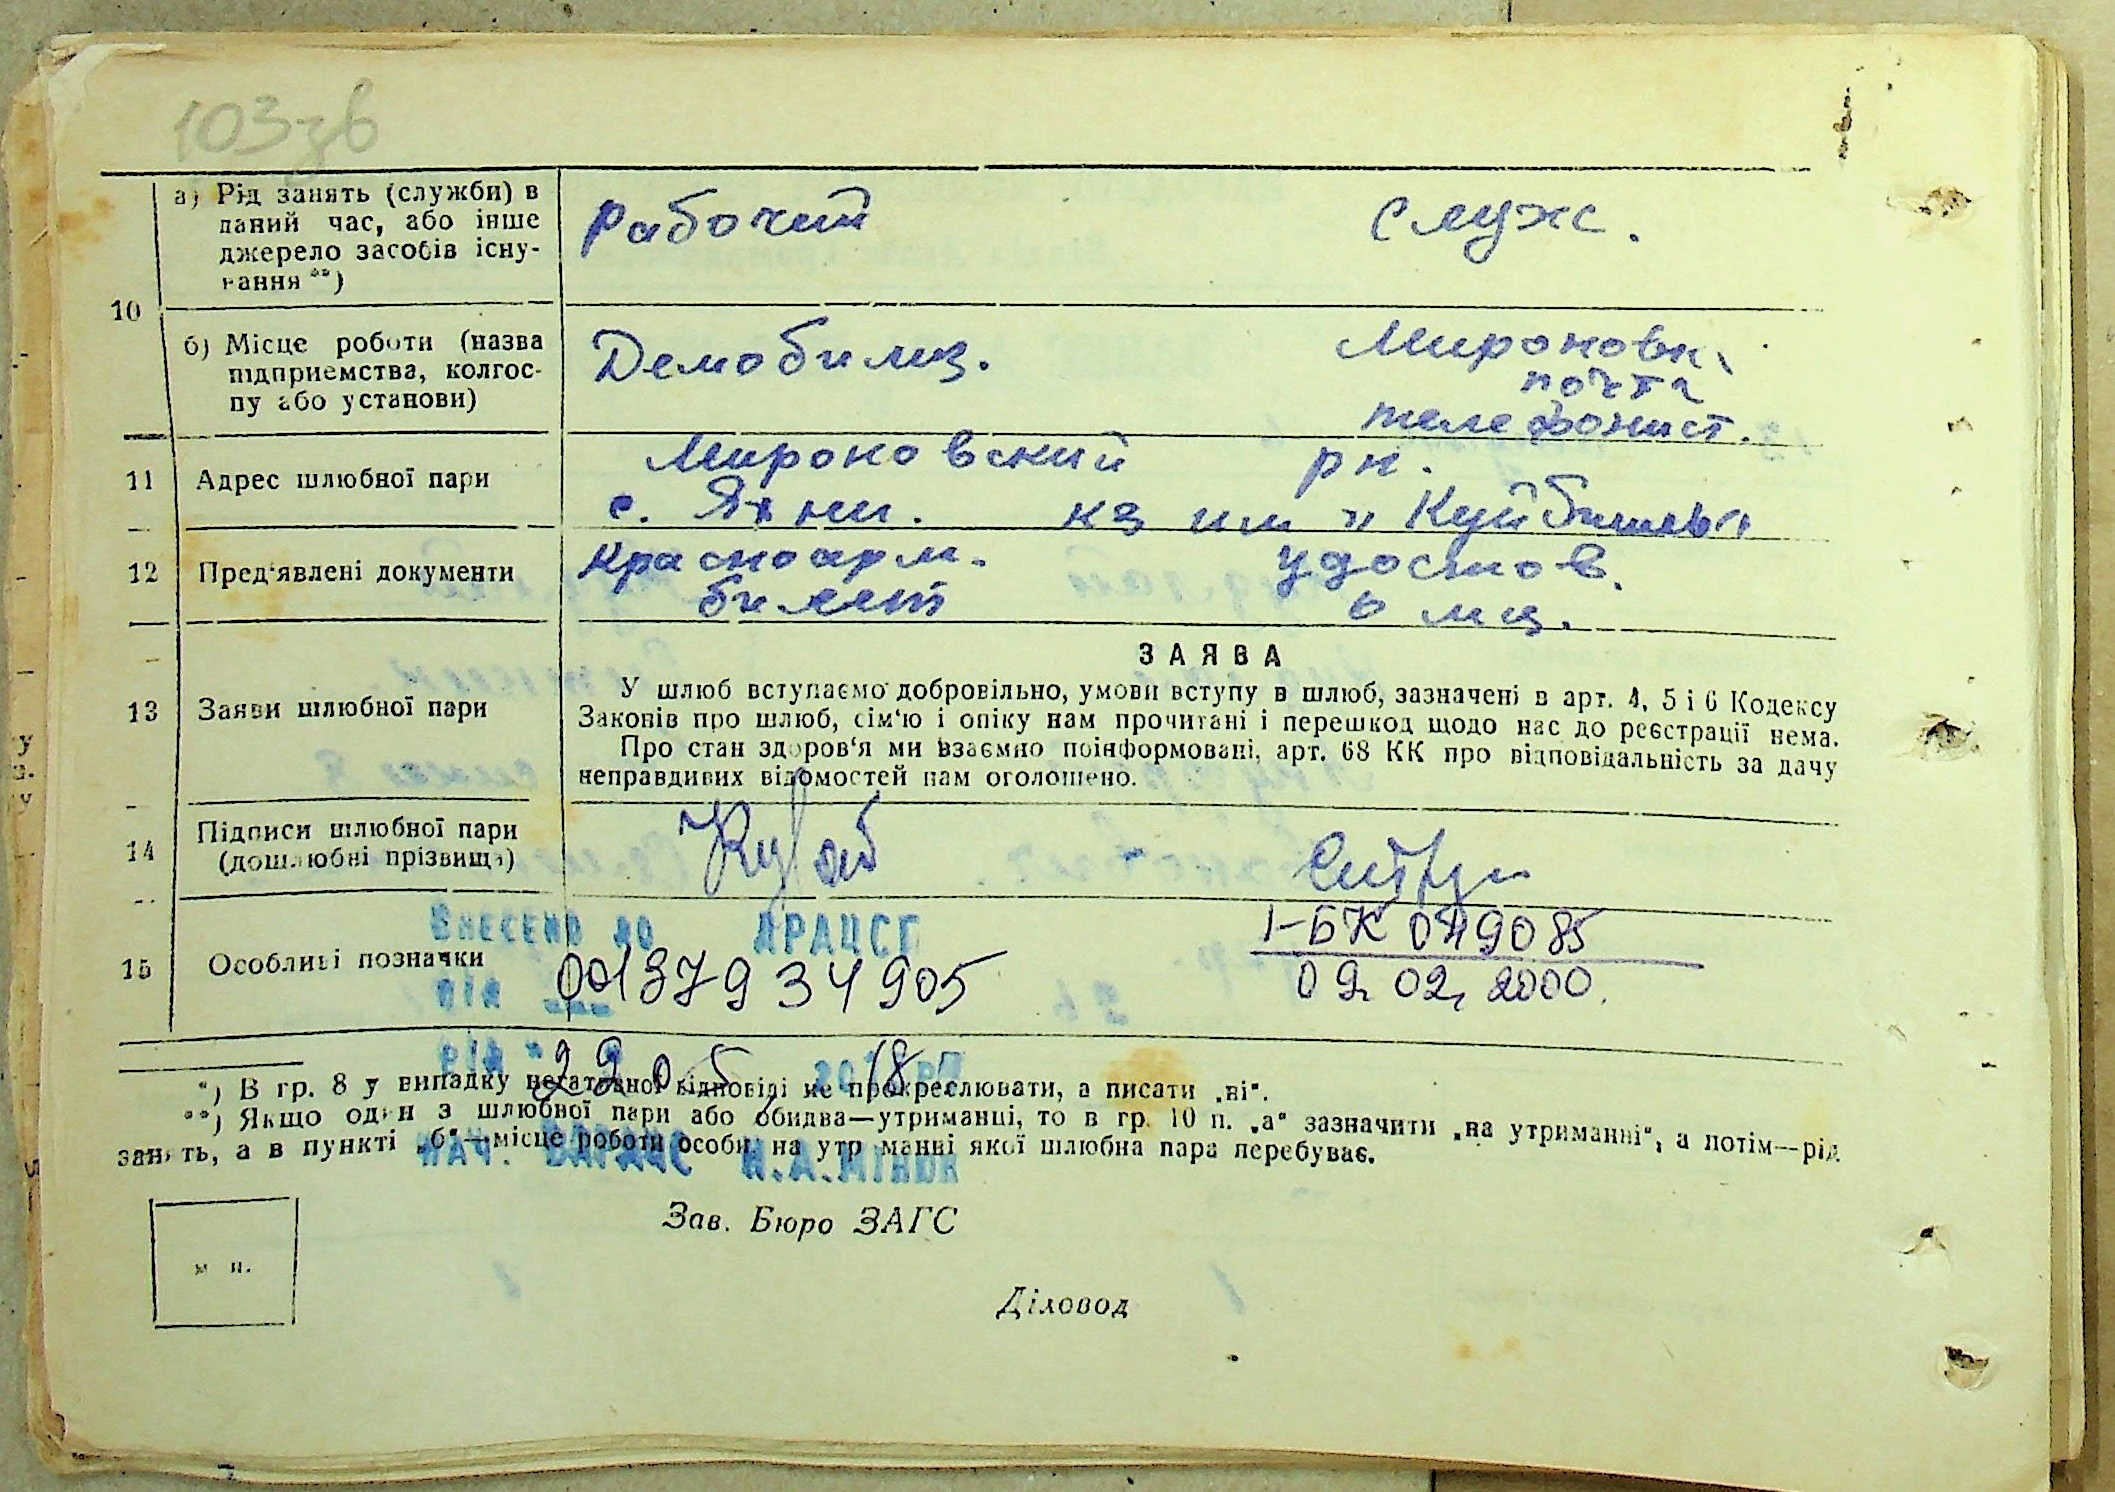 103зв
а) Рід занять (службы) в
даний час, або інше
джерело засобів існу-
вання **)
рабочий
служ.
10
б) Місце роботи (назва
підприємства, колгос-
пу або установи)
Демобилиз.
Мироновк.
почта
телефонист.
11
Адрес шлюбної пари
Мироновский рн.
с. Яхни. кз им "Куйбишева"
12
Пред'явлені документи
красноарм.
билет
удостов.
о лич.
ЗАЯВА
13
Заяви шлюбної пари
У шлюб вступаємо добровільно, умови вступу в шлюб, зазначені в арт. 4, 5 і 6 Кодексу
Законів про шлюб, сім'ю і опіку нам прочитані і перешкод щодо нас до реєстрації нема.
Про стан здоров'я ми взаємно поінформовані, арт. 68 КК про відповідальність за дачу
неправдивих відомостей нам оголошено.
14
Підписи шлюбної пари
(дошлюбні прізвища)
15
Особливі позначки
Внесено до ДРАЦСГ
00137934905
від
І-БК 049085
09.02.2000.
від "22" 05 2018 р.
*) В гр. 8 у випадку негативної відповіді не прокреслювати, а писати „ні".
**) Якщо один з шлюбної пари або обидва—утриманці, то в гр. 10 п. „а" зазначити „на утриманні", а потім—рід
занять, а в пункті „б"—місце роботи особи, на утриманні якої шлюбна пара перебуває.
Нач. Н.А.Мінюк
Зав. Бюро ЗАГС
м п.
Діловод